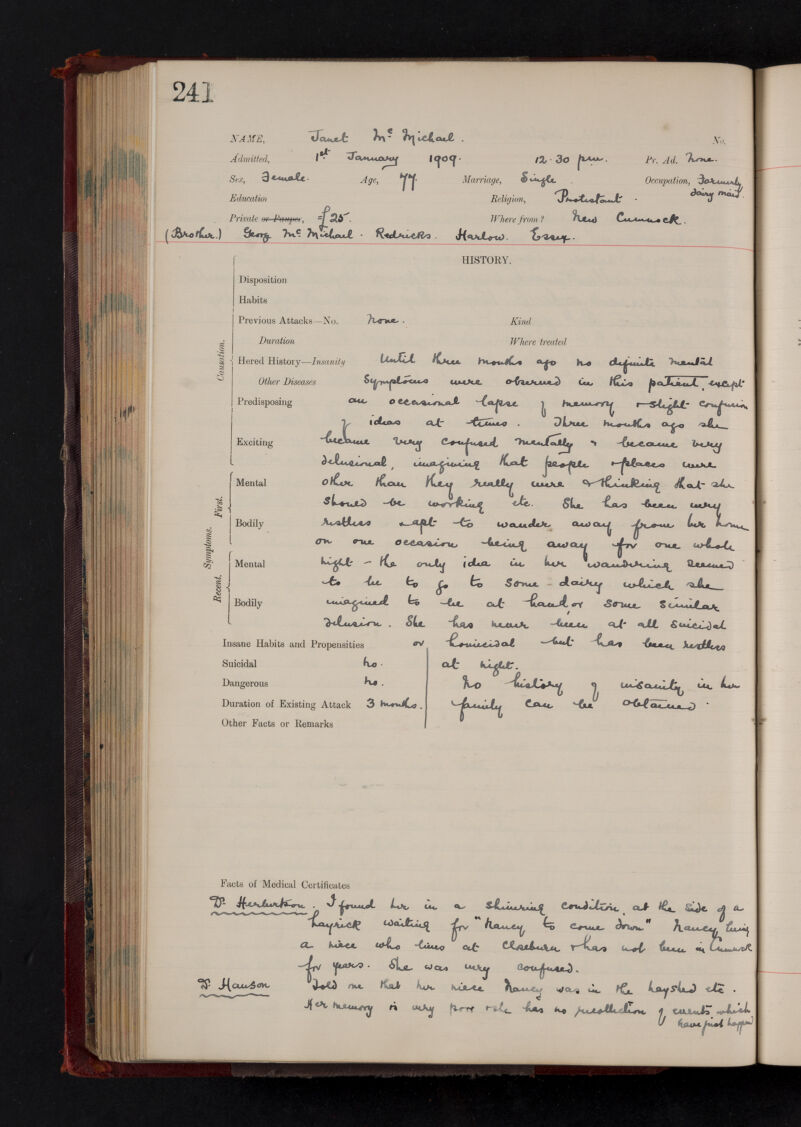 241
NAME, Janet Mc Michael. No.
Admitted, 1st January 1909. 12.30 pm. Pr. Ad. None.
Sex, Female. Age, 77 Marriage, Single Occupation, Formerly
Education Religion, Protestant. dairy maid.
Private or Pauper, £25. Where from? New Cumnock.
(Brother.) Georg Mc Michael. Redricks. Harlow. Essex.
HISTORY.
Disposition
Habits
Previous Attacks—No. None. Kind
Duration Where treated
Causation.
Hered History—Insanity Until three months ago no definite mental
Other Diseases Symptoms were observed in this patient, except
Predisposing an occasional lapse of memory & slight confusion
of ideas at times. Three months ago she
Exciting became very confused mentally & became very
delusional, imagining that people & places were
Symptoms. First.
Mental other than they really were & thinking that she
should be working etc. She has been very
Bodily restless & apt to wander away from her home
on one occasion being away for one whole
Recent.
Mental night - the only idea in her wandering seemed
to be to go to some dairy which she
Bodily imagined to be at hand or some similar
delusion. She has never been at all suicidal
Insane Habits and Propensities or homicidal but has been restless
Suicidal No. at night.
Dangerous No. No history of insanity in her
Duration of Existing Attack 3 months. family can be obtained.
Other Facts or Remarks
Facts of Medical Certificates
Dr. Herbertson. I found her in a shivering condition at the side of a
hayrick waiting for "Nancy to come down" Nancy being
a niece who lives at Closeburn & has not been in Cumnock
for years. She was very confused.
Dr. Hanson Told me that her niece Nancy was in the hayshed etc.
Her memory is very poor & she has no recollection of events which
have just happend